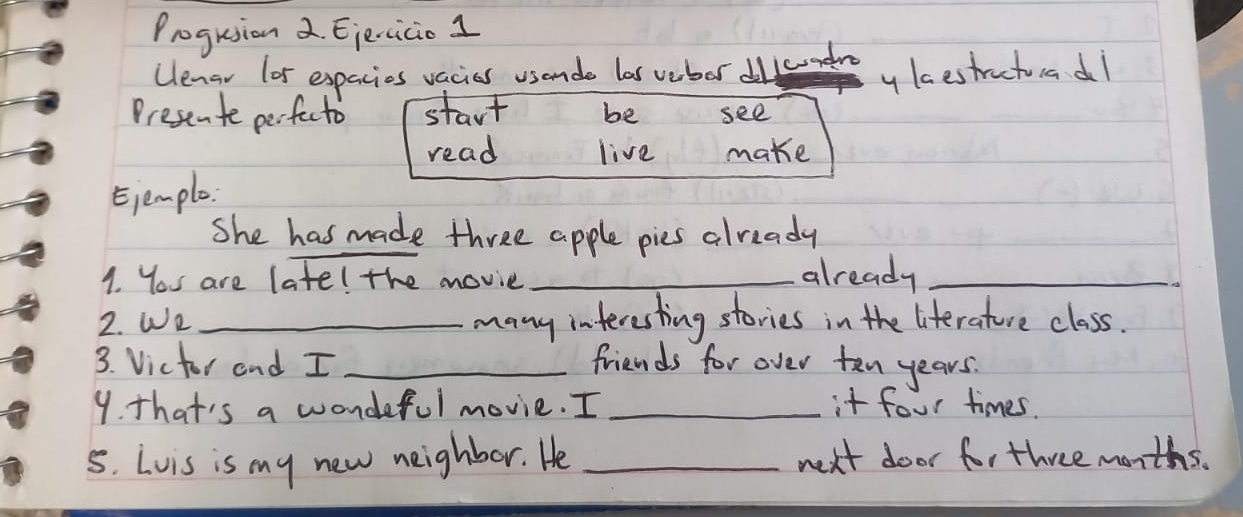 Progresion 2. Ejercicio 1
Llenar los espacios vacios usando los verbos del cuadro y la estructura del
Presente perfecto
start be see
read live make
Ejemplo:
She has made three apple pies already
1. You are late! the movie ____________ already ____________.
2. We ____________ many interesting stories in the literature class.
3. Victor and I ____________ friends for over ten years.
4. that's a wondeful movie. I ____________ it four times.
5. Luis is my new neighbor. He ____________ next door for three months.